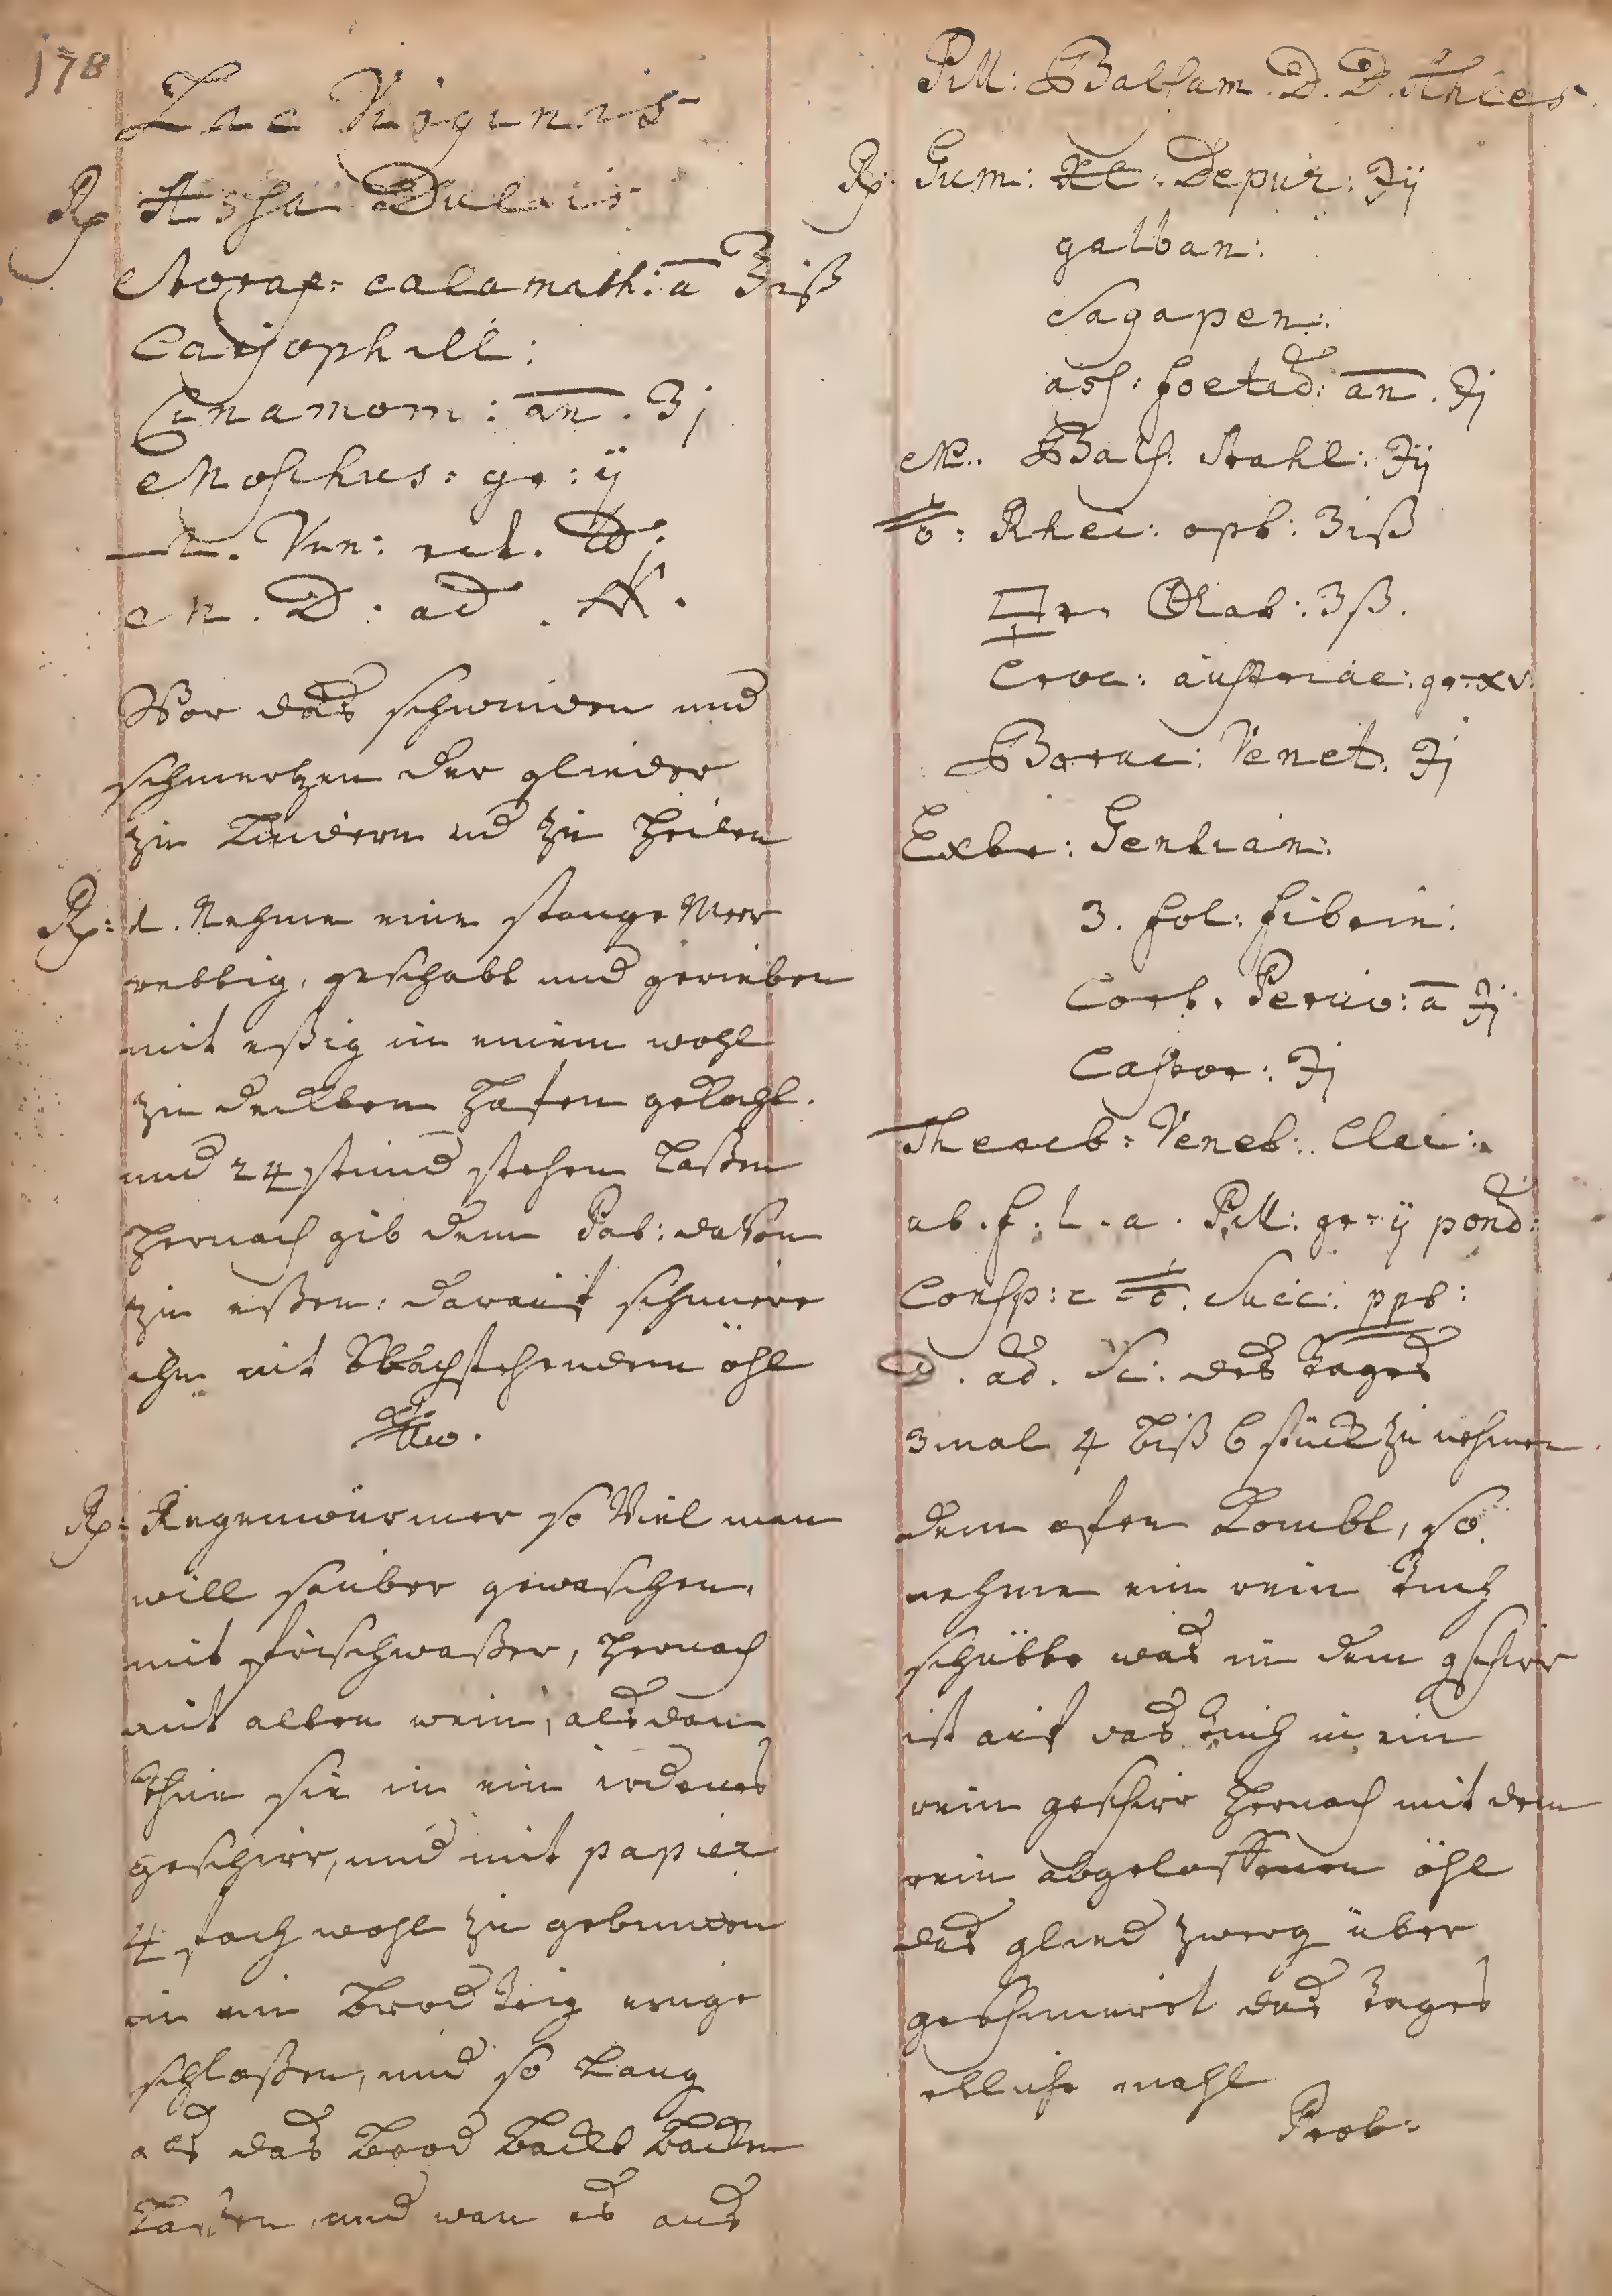 178
Lac Virginis
Rp Assa Dulcis
Storax: calamith: a ʒiß
Carijophill:
Cinamom: an. ʒj
Moschus: gr: ij
Vin: rect. ℔j
M. D: ad
Vor das schwinden und
schmertzen der glieder
zu Lindern ud zu heilen
Rp: Nehme eine stange Meer
rettig, geschabt und gerieben
mit eßig in einem wohl
zu deckten hafen gekocht.
und 24 stund stehen laßen
hernach gib dem Pat: davon
zu eßen: darauf schmiere
ihn mit Nachstehendem öhl
Rp: Regenwürmer so Viel man
will sauber gewaschen,
mit frischwaßer, hernach
mit alten wein, alsdan
thue sie in ein irdenes
geschirr, und mit papier
4 fach wohl zu gebunden
in ein brod teig einge
schloßen, und so lang
als das brod backt backen
laßen, und wan es aus
Pill: Balsam. D. D.
Rp. Gum: Depur: ʒij
galban:
Sagapen:
ass: foetid: an. ʒj
M. Bals: Stahl: ʒij
Rhei: opt: ʒiß
ʒß.
Croc: austriac: gr: xv.
Borac: Venet. ʒj
Extr: Gentian:
3. fol: fibrin:
Cort. Peruv: a ʒj
Castor: ʒj
Thereb: Venet:
ut. f. l. a. Pill: gr: ij pond:
Consp: c Succ: ppt:
D. ad. Sc: des Tages
3 mal 4 biß 6 stück zu nehmen
dem ofen kombt, so
nehme ein rein Tuch
schütte was in dem gschirr
ist auf das tuch in ein
rein geschirr hernach mit dem
rein abgeloffenen öhl
das glied zwerg über
geschmiert des Tages
etliche mahl
Prob: